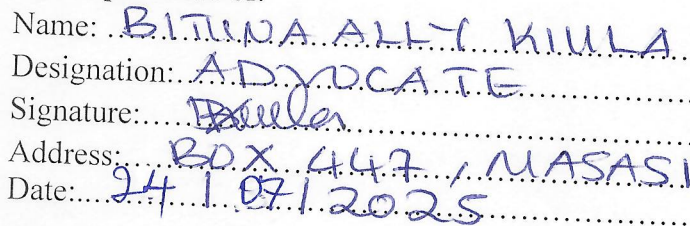 Name: BITUNA ALLY KIULA
Designation: ADVOCATE
Signature:
Address: BOX 447, MASASI
Date: 24/07/2025